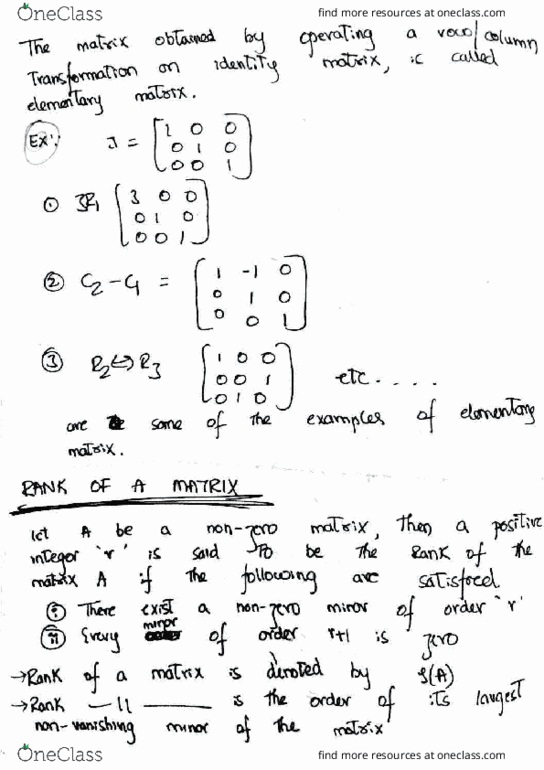 OneClass
find more resources at oneclass.com
The matrix obtained by operating a row/column
Transformation on identity matrix, is called
elementary matrix.
EX: I = [1 0 0
0 1 0
0 0 1]
① 3R1 [3 0 0
0 1 0
0 0 1]
② C2 - C1 = [1 -1 0
0 1 0
0 0 1]
③ R2 ⇔ R3 [1 0 0
0 0 1
0 1 0] etc....
are some of the examples of elementary
matrix.
RANK OF A MATRIX
let A be a non-zero matrix, then a positive
integer 'r' is said to be the Rank of the
matrix A if the following are satisfied
(i) There exist a non-zero minor of order 'r'
(ii) Every minor of order r+1 is zero
→Rank of a matrix is denoted by ρ(A)
→Rank —11—— is the order of its largest
non-vanishing minor of the matrix
OneClass
find more resources at oneclass.com